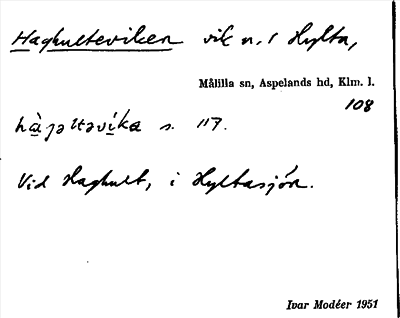 Haghulteviken vik n. i Hylta,
Målilla sn, Aspelands hd, Klm. l.
108
hà̱gəltəví̱ka s. 117.
Vid Haghult, i Hyltasjön.
Ivar Modéer 1951